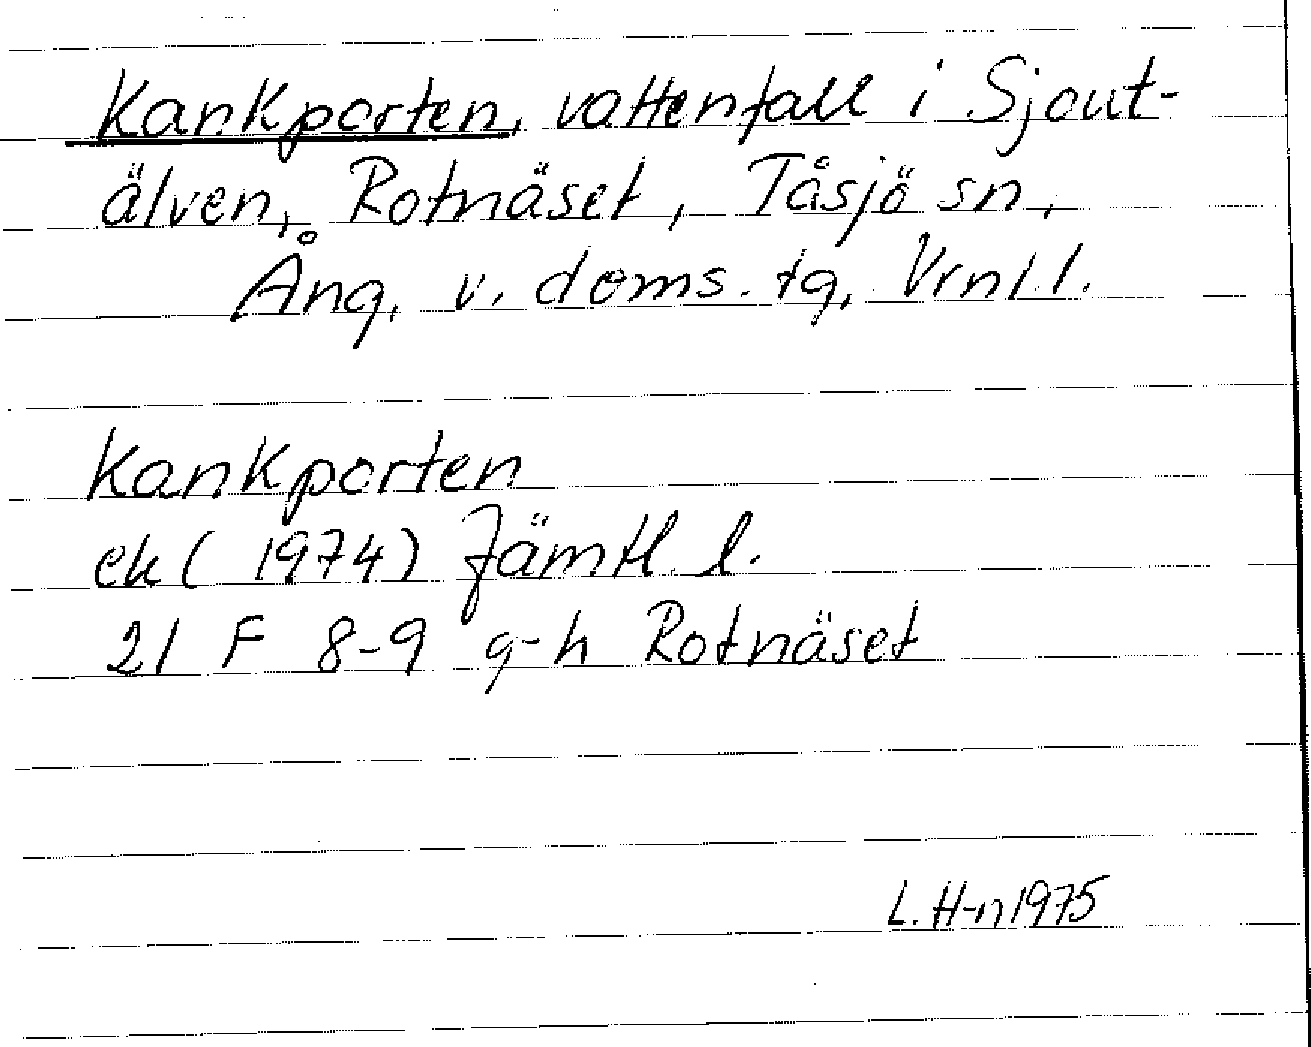 Kankporten, vattenfall i Sjout-
älven, Rotnäset, Tåsjö sn,
Ång. v. doms. tg, Vrnl. l.
Kankporten
ek (1974) Jämtl. l.
21 F 8-9 g-h Rotnäset
L. H-n 1975